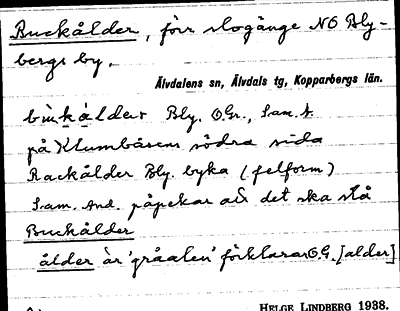 Buckålder, förr slogänge NO Bly-
bergs by.
Älvdalens sn, Älvdals tg, Kopparbergs län.
bùkálder Bly. O.Gr., Sam. A.
på Klumbåsens södra sida
Rackålder Bly. byka (felform)
Sam. And. påpekar att det ska stå
Buckålder
ålder är 'gråalen' förklarar O.G. [alder]
HELGE LINDBERG 1938.